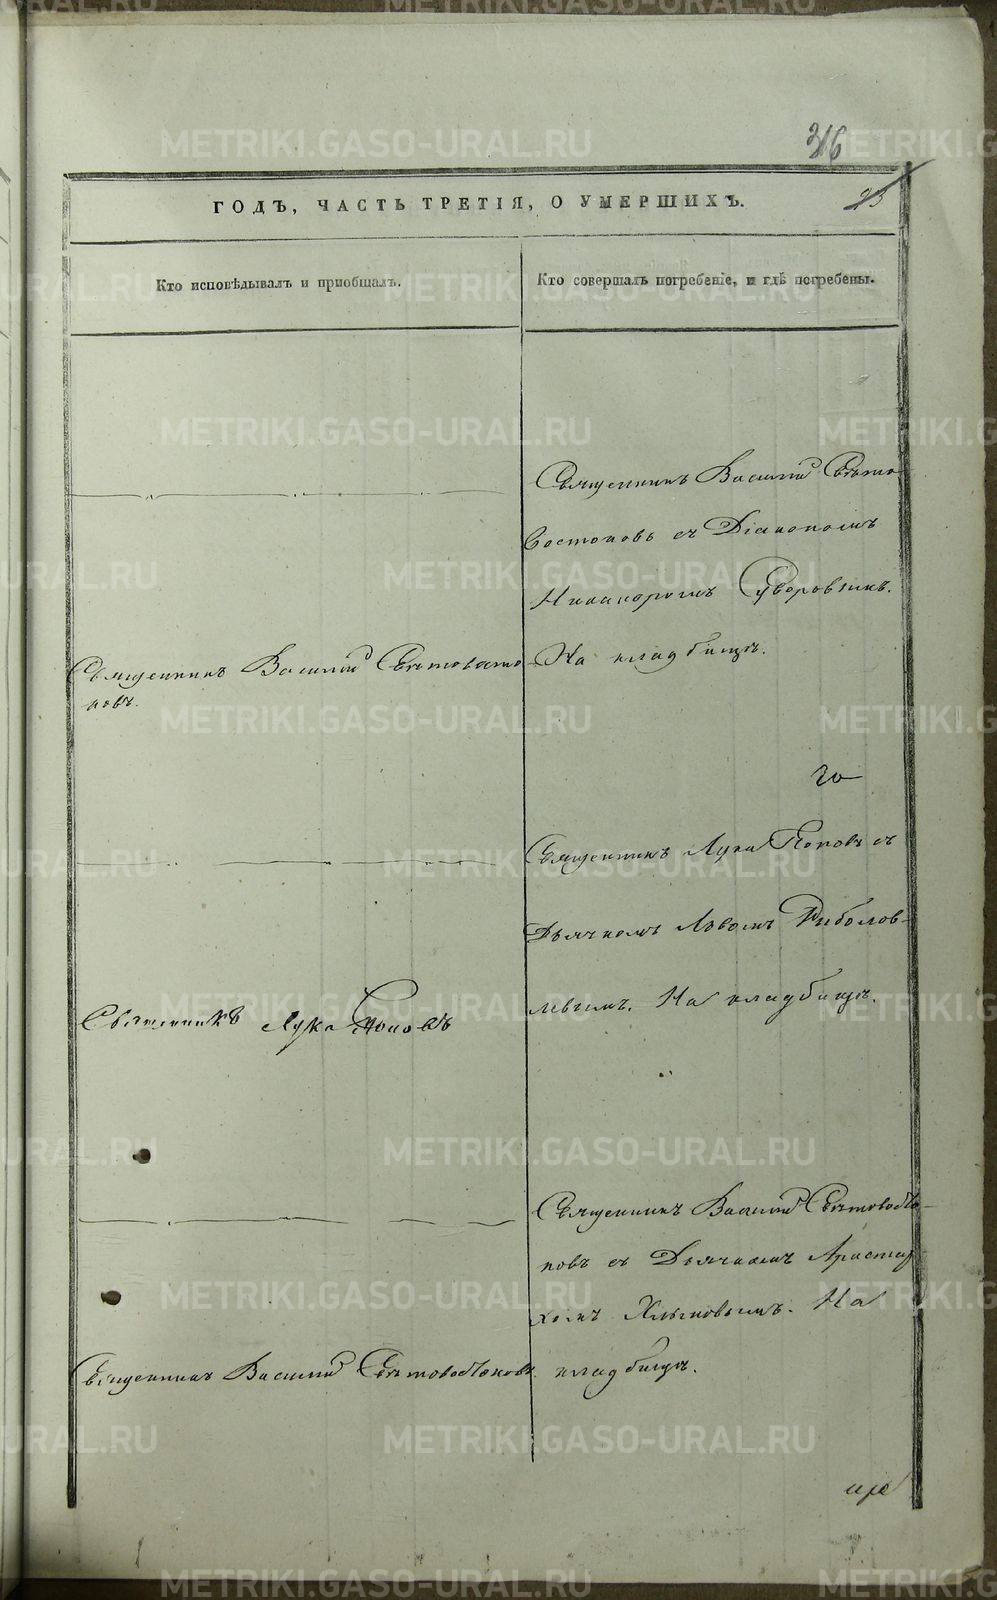 316
23
ГОДЪ, ЧАСТЬ ТРЕТІЯ, О УМЕРШИХЪ.
Кто исповѣдывалъ и пріобщалъ.
Кто совершалъ погребеніе, и гдѣ погребены.
Священникъ Василій Свѣто
Востоковъ съ Діакономъ
Никаноромъ Суворовымъ.
На кладбищѣ.
Священникъ Василій Свѣтовосто
ковъ.
Священникъ Лука Поповъ съ
Дьячкомъ Львомъ Рыболов-
левымъ. На кладбищѣ.
Священникъ Лука Поповъ
Священникъ Василій Свѣтовосто-
ковъ съ Дьячкомъ Аристар
хомъ Хлыновымъ. На
кладбищѣ.
Священникъ Василій Свѣтовостоковъ.
METRIKI.GASO-URAL.RU